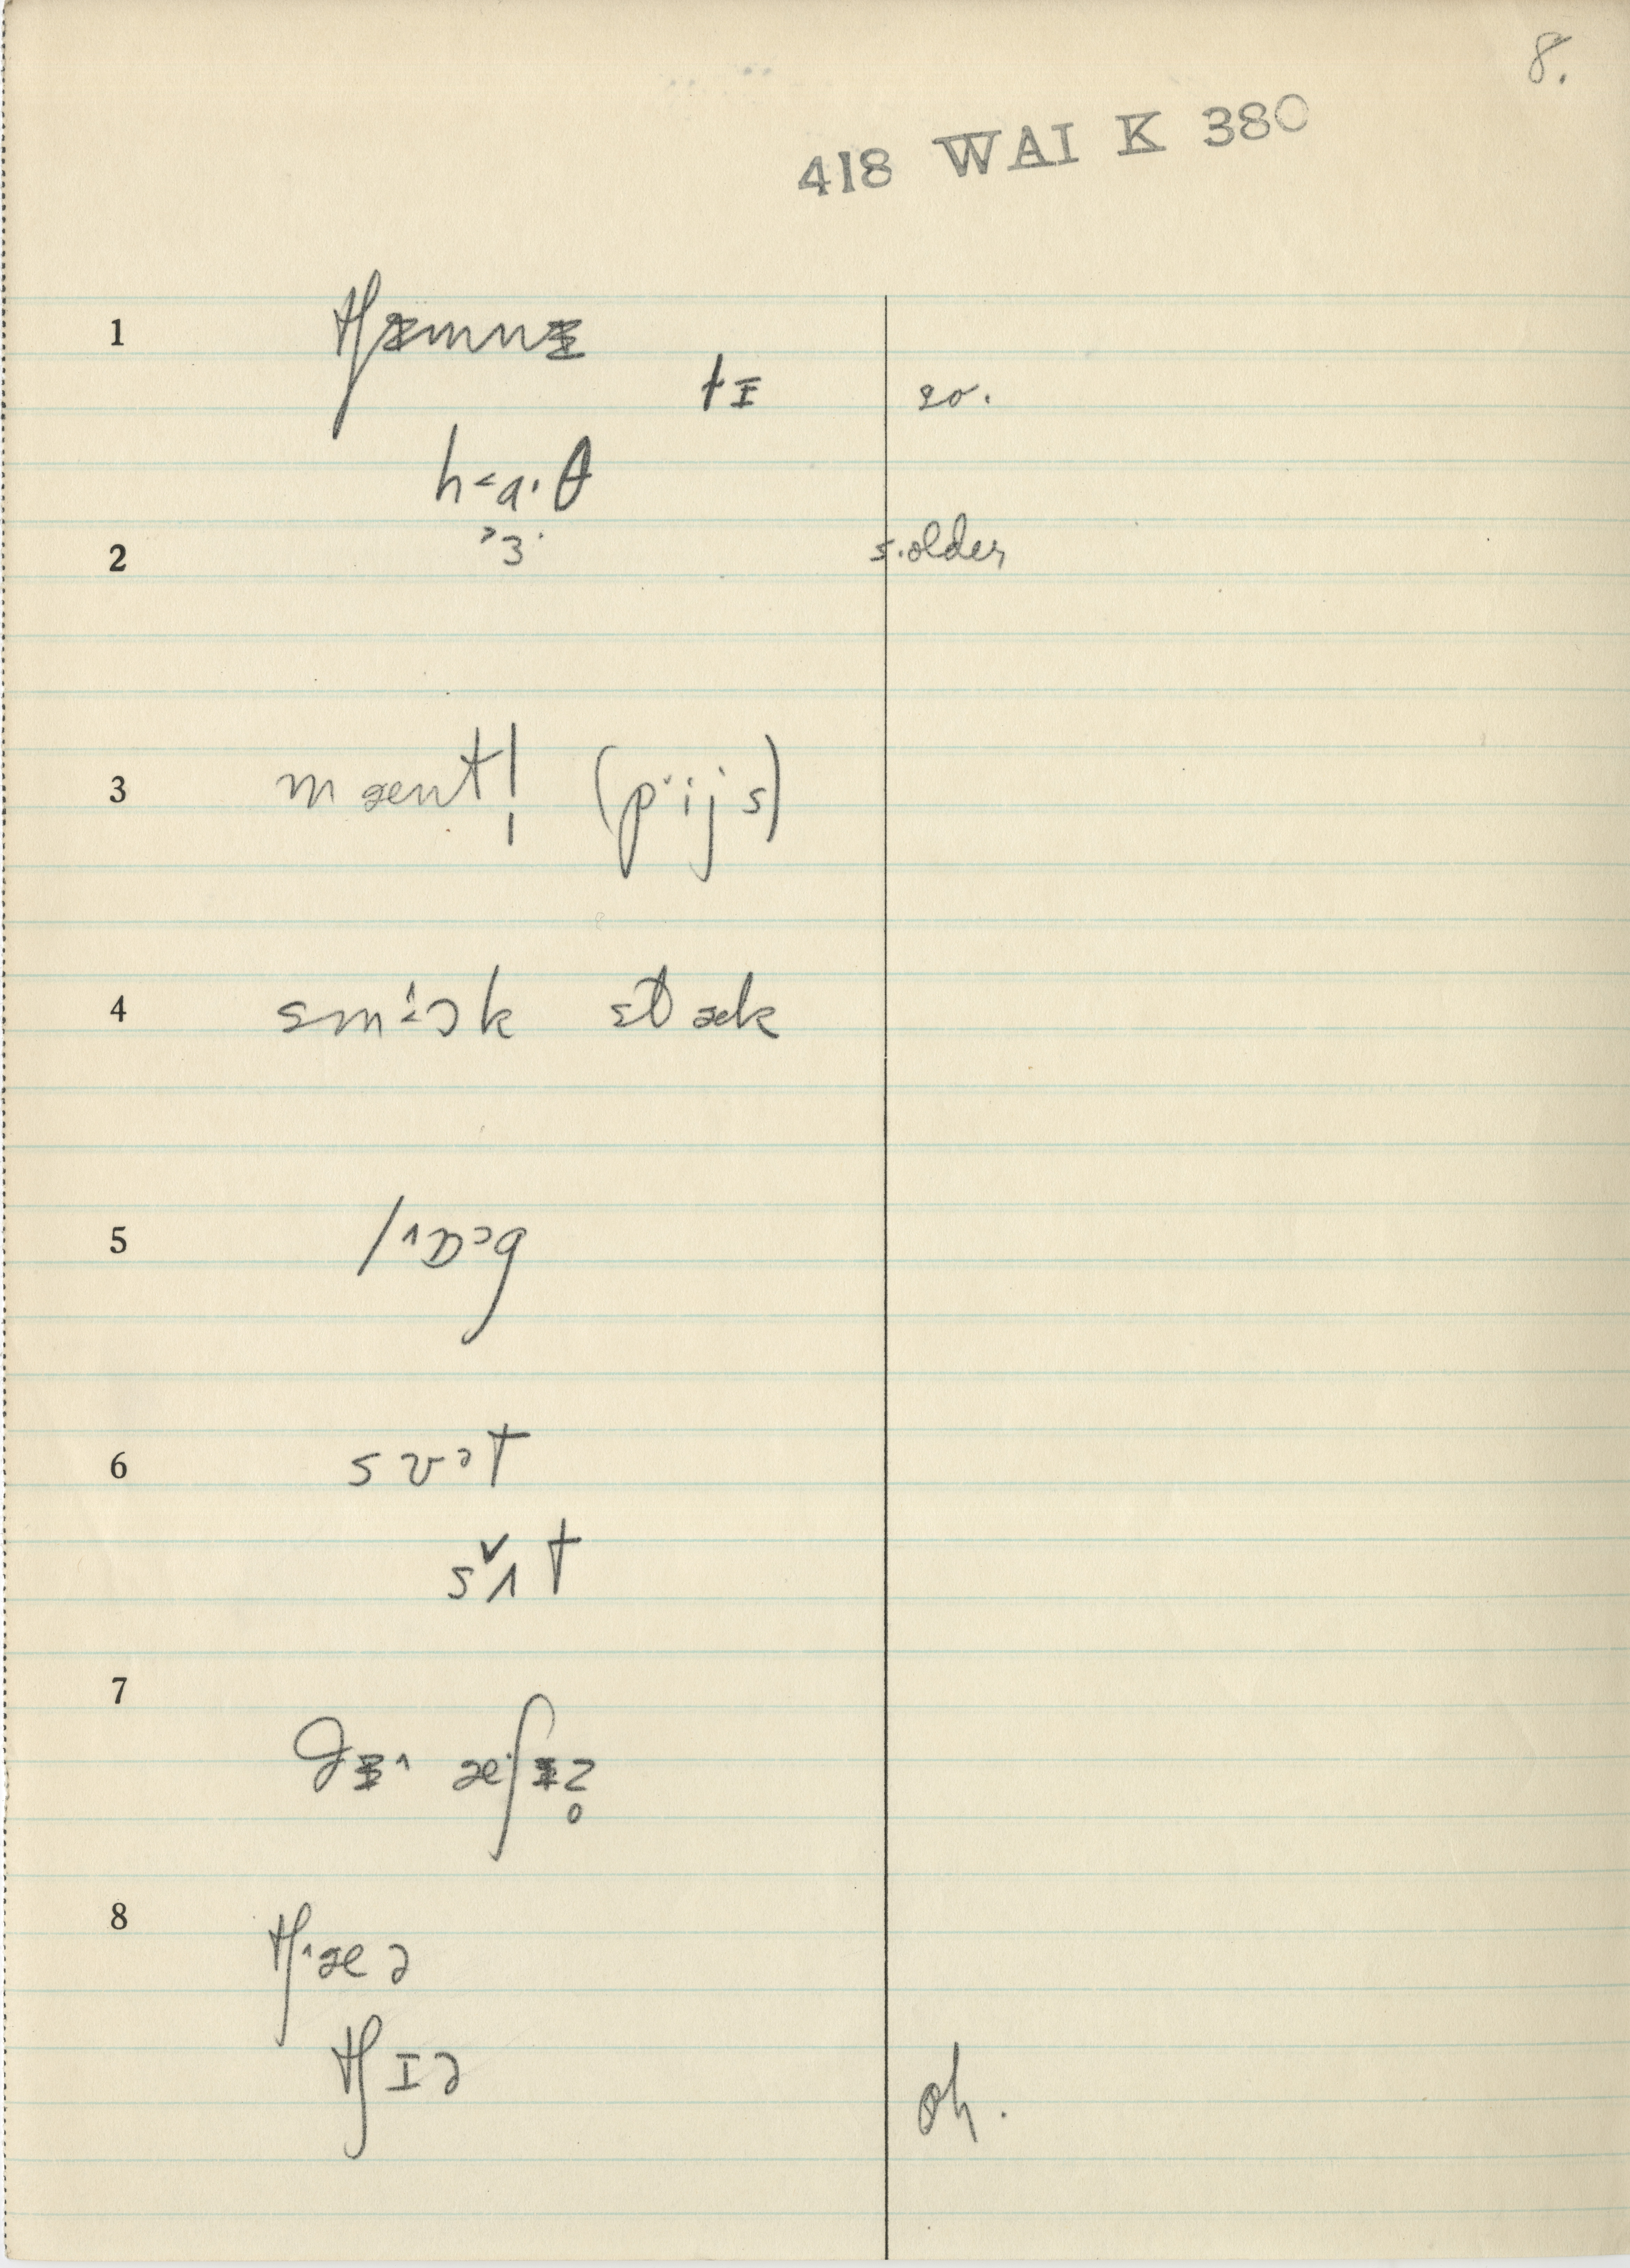 8.
418 WAI K 380
1 tʃɪmnɪ
tɪ so.
h˂a·θ
˒ɜ·
2 s. older
3 mæntl̩ (p˅ijs)
4 sm˂ɔk stæk
5 l˄ɒɔg
6 sʊət
s˅ʌt
7 æʃɪz̥
8 tʃ˄æə
tʃɪə oh.